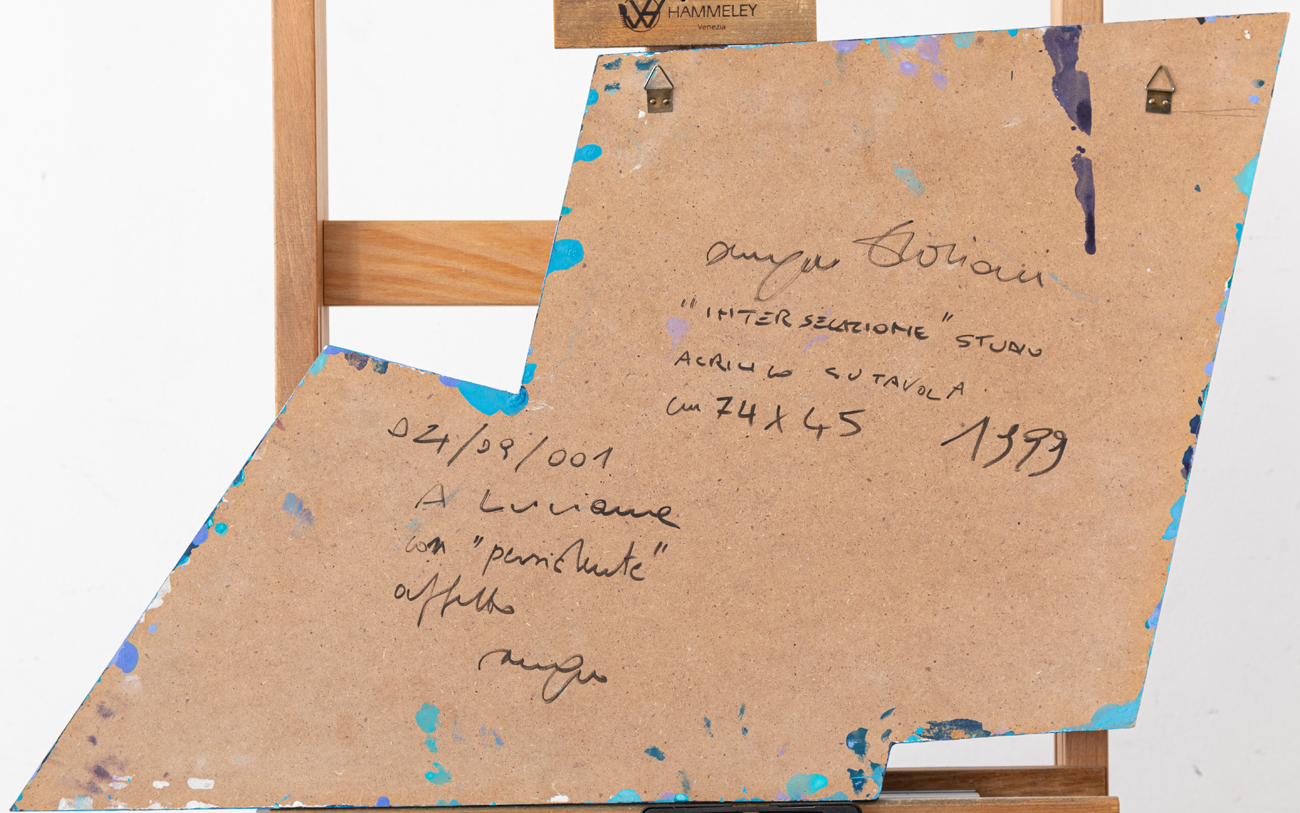 HAMMELEY
Venezia
"INTERSELAZIONE" STUDIO
ACRILICO SU TAVOLA
cm 74 X 45 1999
D24/D9/001
A Luciana
con "persistente"
affetto